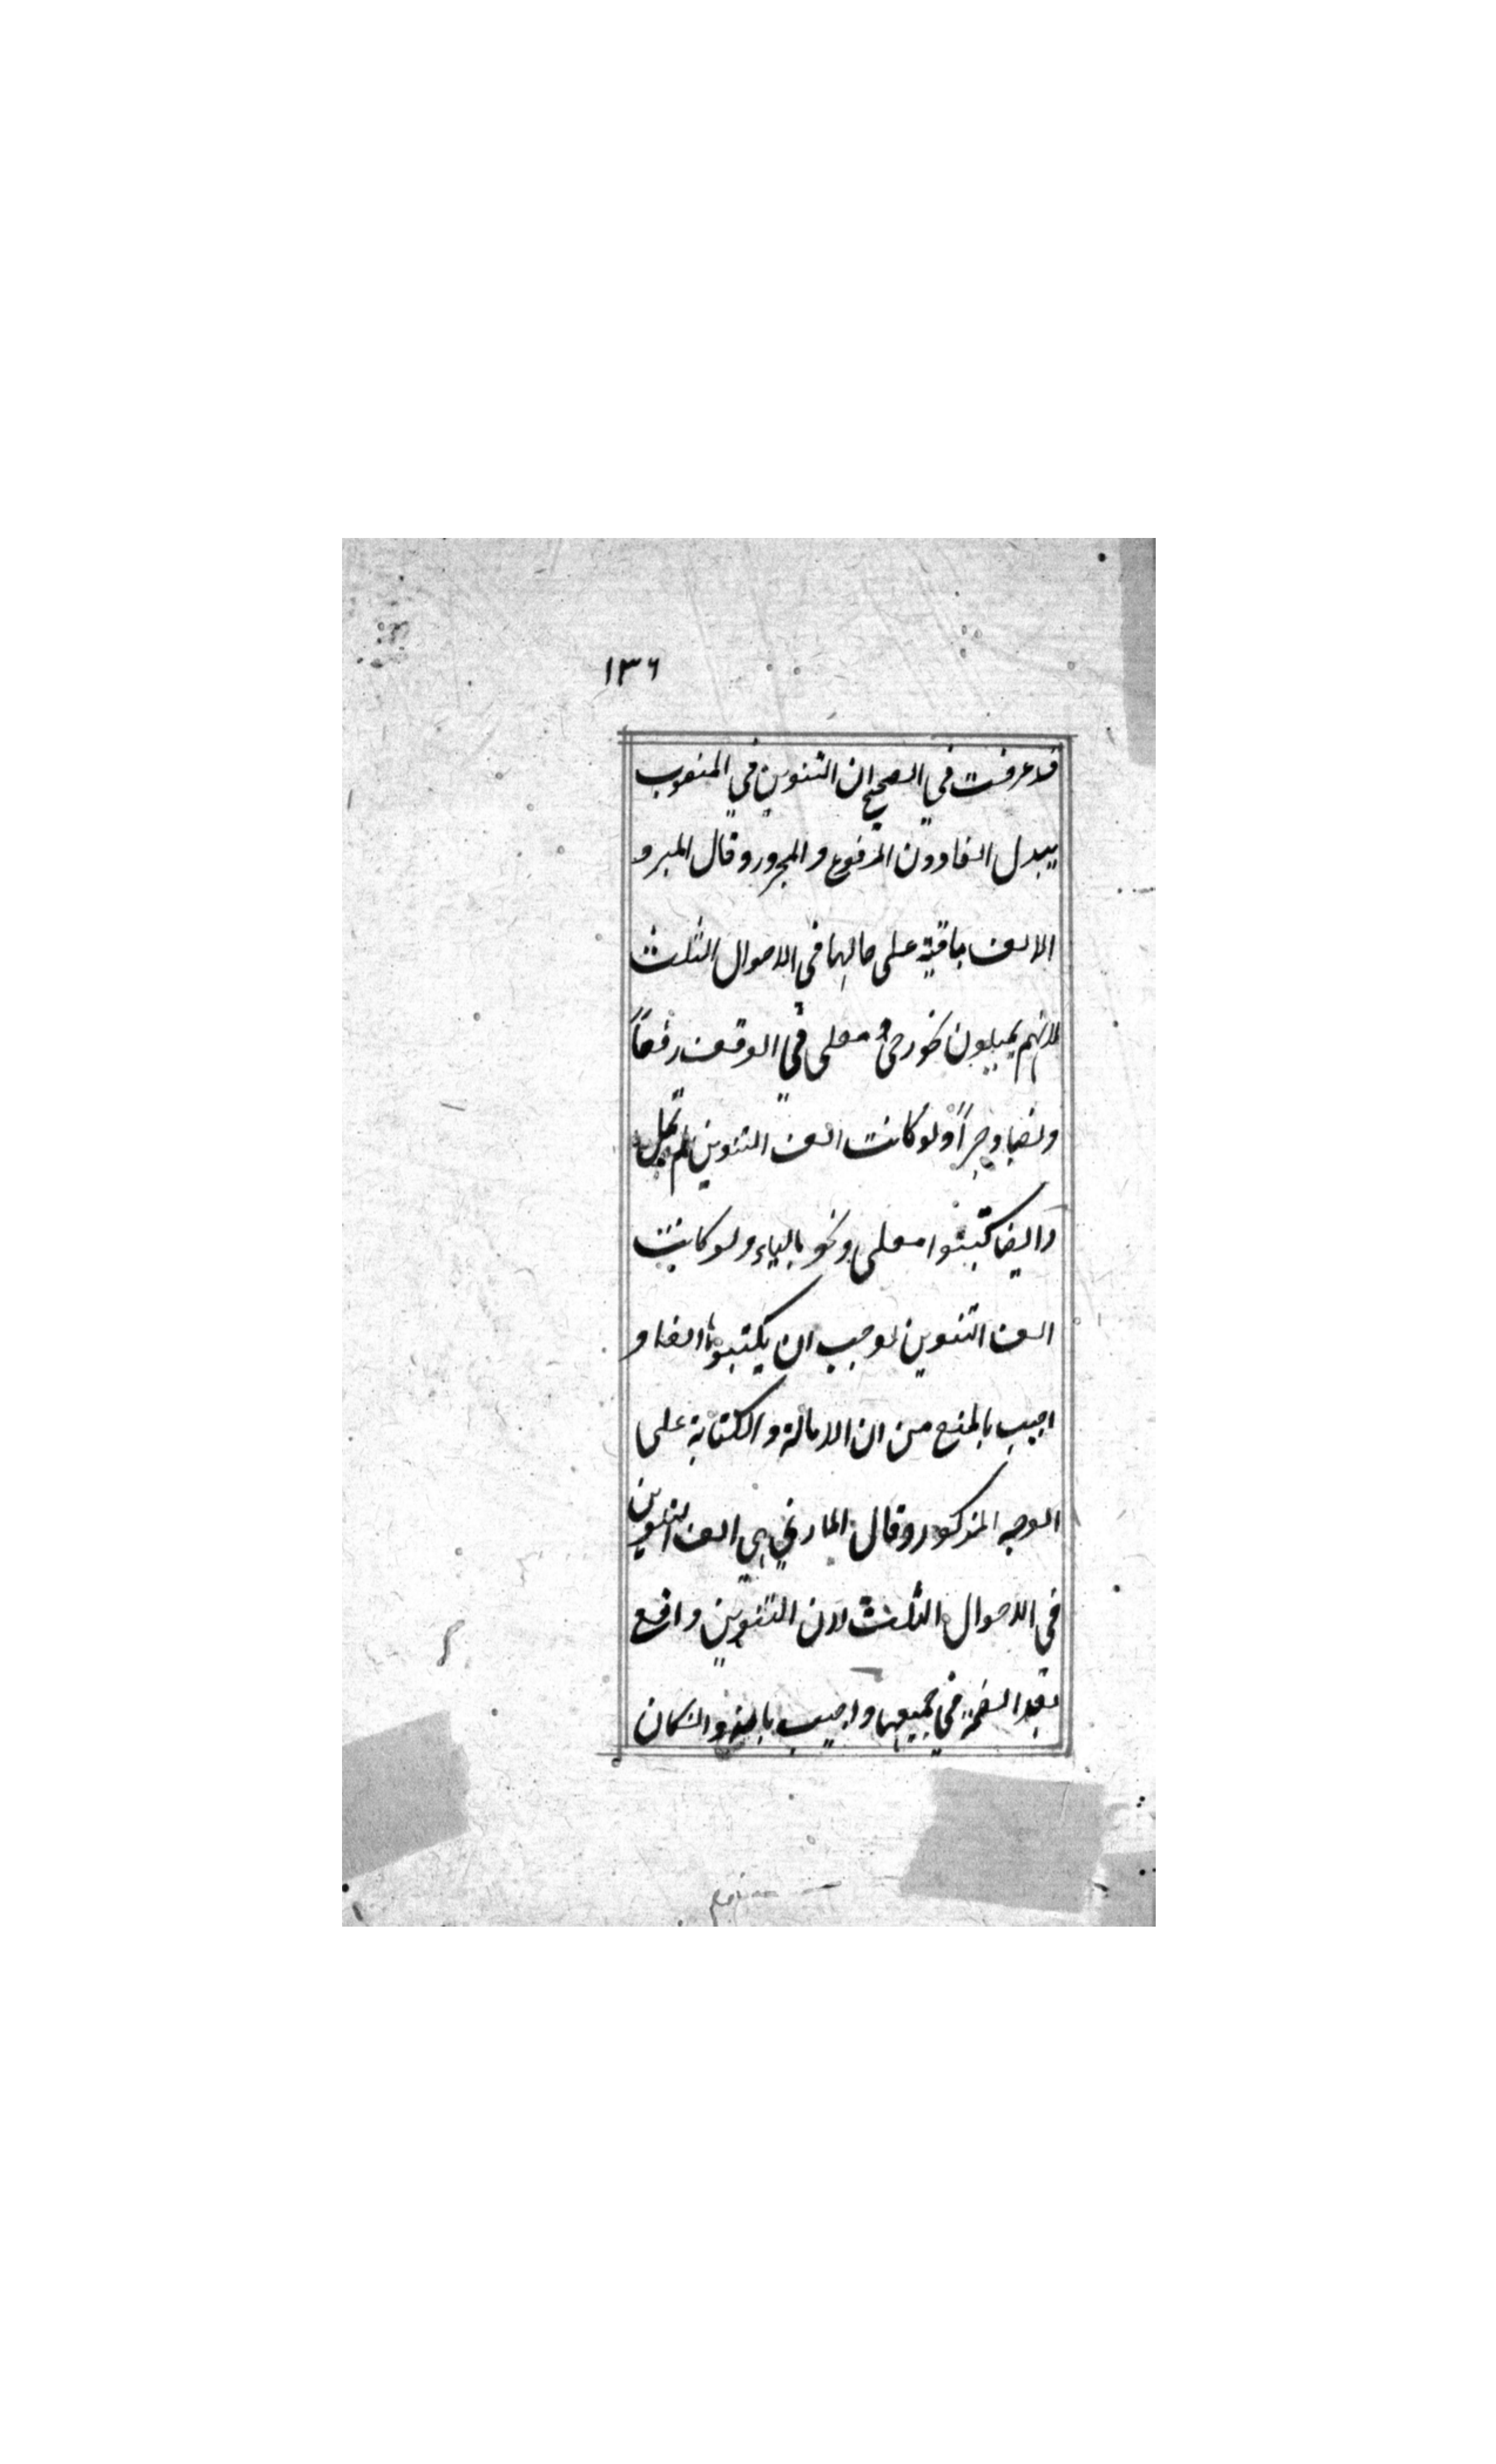 ١٣٦
قد عرفت في الصحيح ان التنوين في المنصوب
يبدل الفا دون المرفوع والمجرور وقال المبرد
الالف باقية على حالها في الاحوال الثلث
لانهم يميلون نحو رحى و معلى في الوقف رفعاً
ونصبا وجراً ولو كانت الف التنوين لم تمل
وايضا كتبوا معلى ونحو بالياء ولو كانت
الف التنوين لوجب ان يكتبوها الفا و
اجيب بالمنع من ان الامالة والكتابة على
الوجه المذكور وقال المازني هي الف التنوين
في الاحوال الثلث لان التنوين واقع
بعد الفتحة في جميعها واجيب وان كان